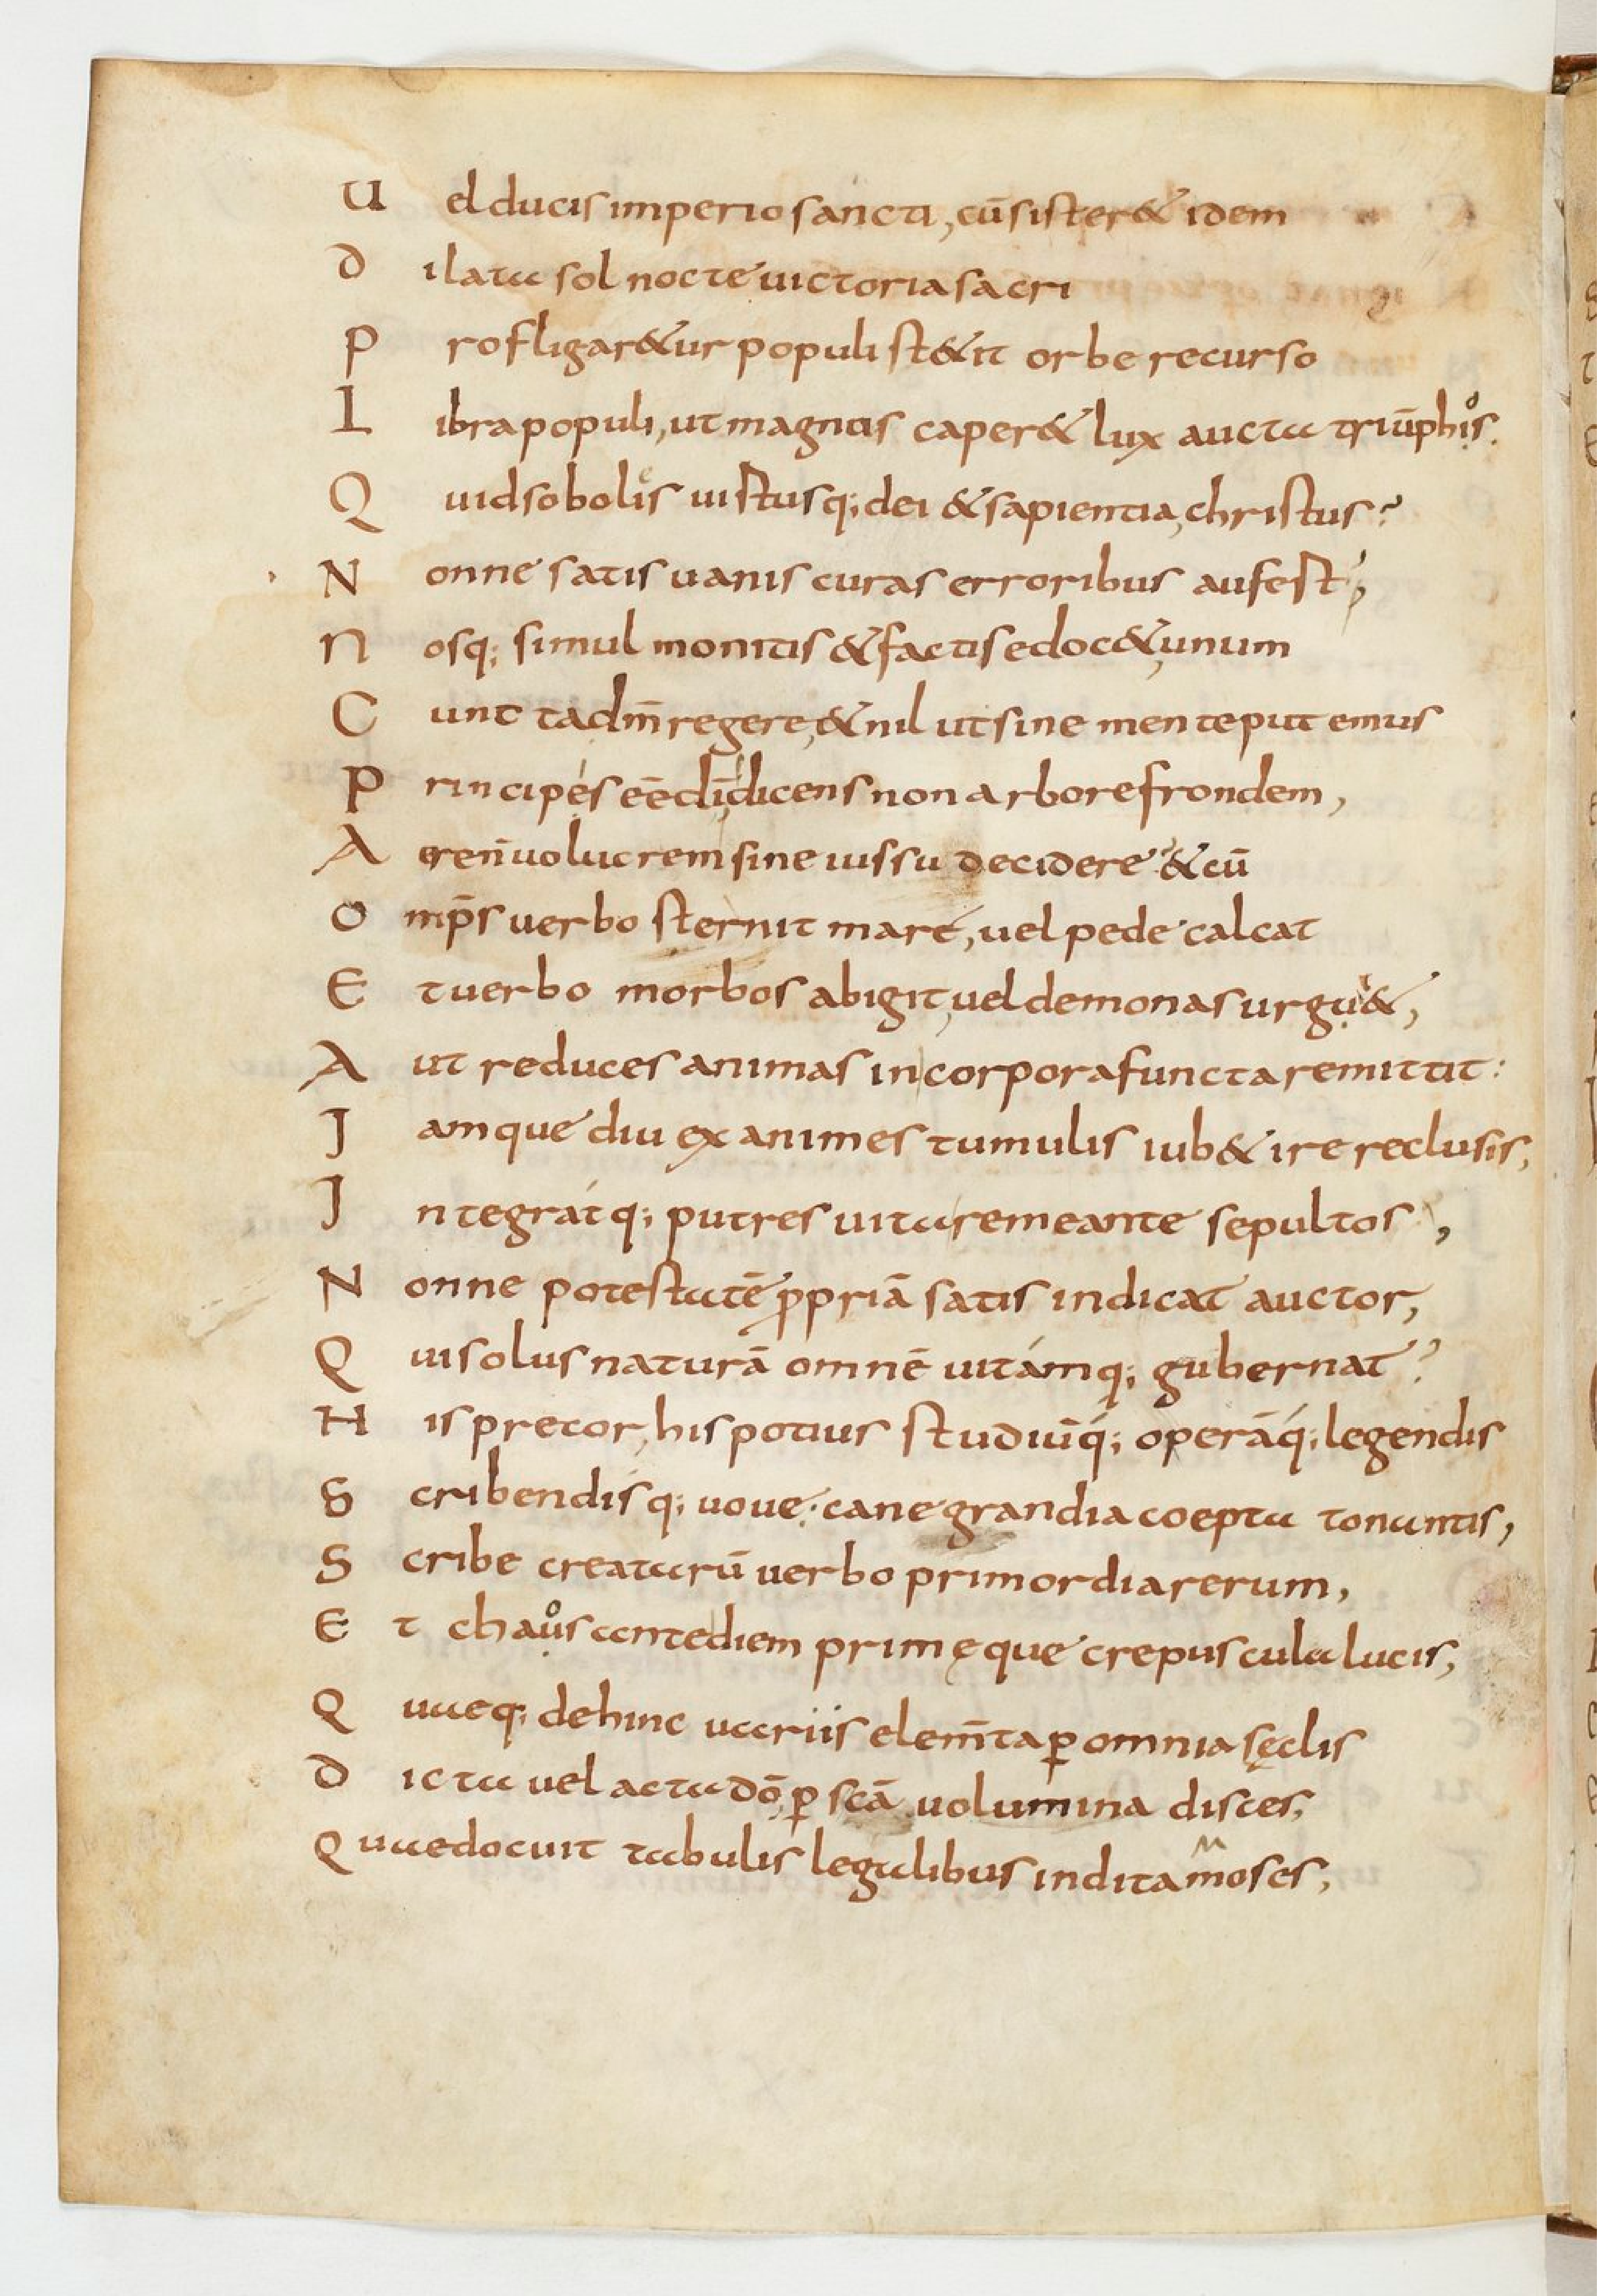 U el ducis imperio sancti, cū sister& idem
D ilata sol nocte uictoria sacri
P rofligar&ur populi st&it orbe recurso
L ibra populi, ut magnis caper& lux aucta triūphis.
Q uid sobolis iustusq; dei & sapientia, christus?
N onne satis uanis curas erroribus aufest;
N osq; simul monitis & factis edoc&, unum
C unctadm̄ regere, & nil ut sine mente putemus
P rincipes eē dī, dicens non arbore frondem,
A eren̄ uolucrem sine iussu decidere? & cū
O mp̄s uerbo sternit mare, uel pede calcat
E t uerbo morbos abigit, uel demonas urgu&,
A ut reduces animas in corpora functa remittit:
J amque diu exanimes tumulis iub& ire reclusis,
J ntegratq; putres uita remeante sepultos,
N onne potestatē ꝓpriā satis indicat auctor,
Q ui solus naturā omnē uitamq; gubernat?
H is precor, his potius studiūq; operāq; legendis
S cribendisq; uoue; cane grandia coepta tonantis,
S cribe creatarū uerbo primordia rerum,
E t chaus ante diem primęque crepuscula lucis,
Q uaeq; dehinc uariis elem̄ta ꝑ omnia sęclis
D icta uel acta dō, ꝑ scā uolumina disces,
Q uae docuit tabulis legalibus indita moses,